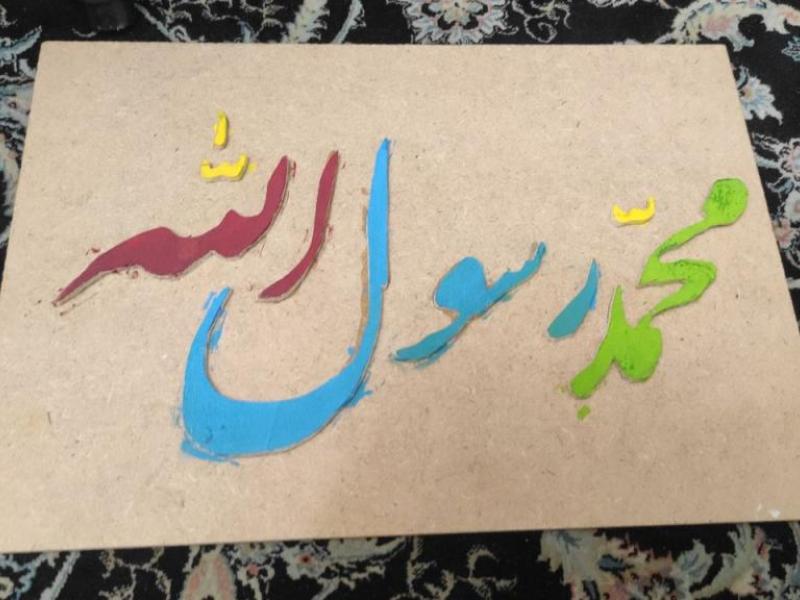 محمّد رسول اللّٰه